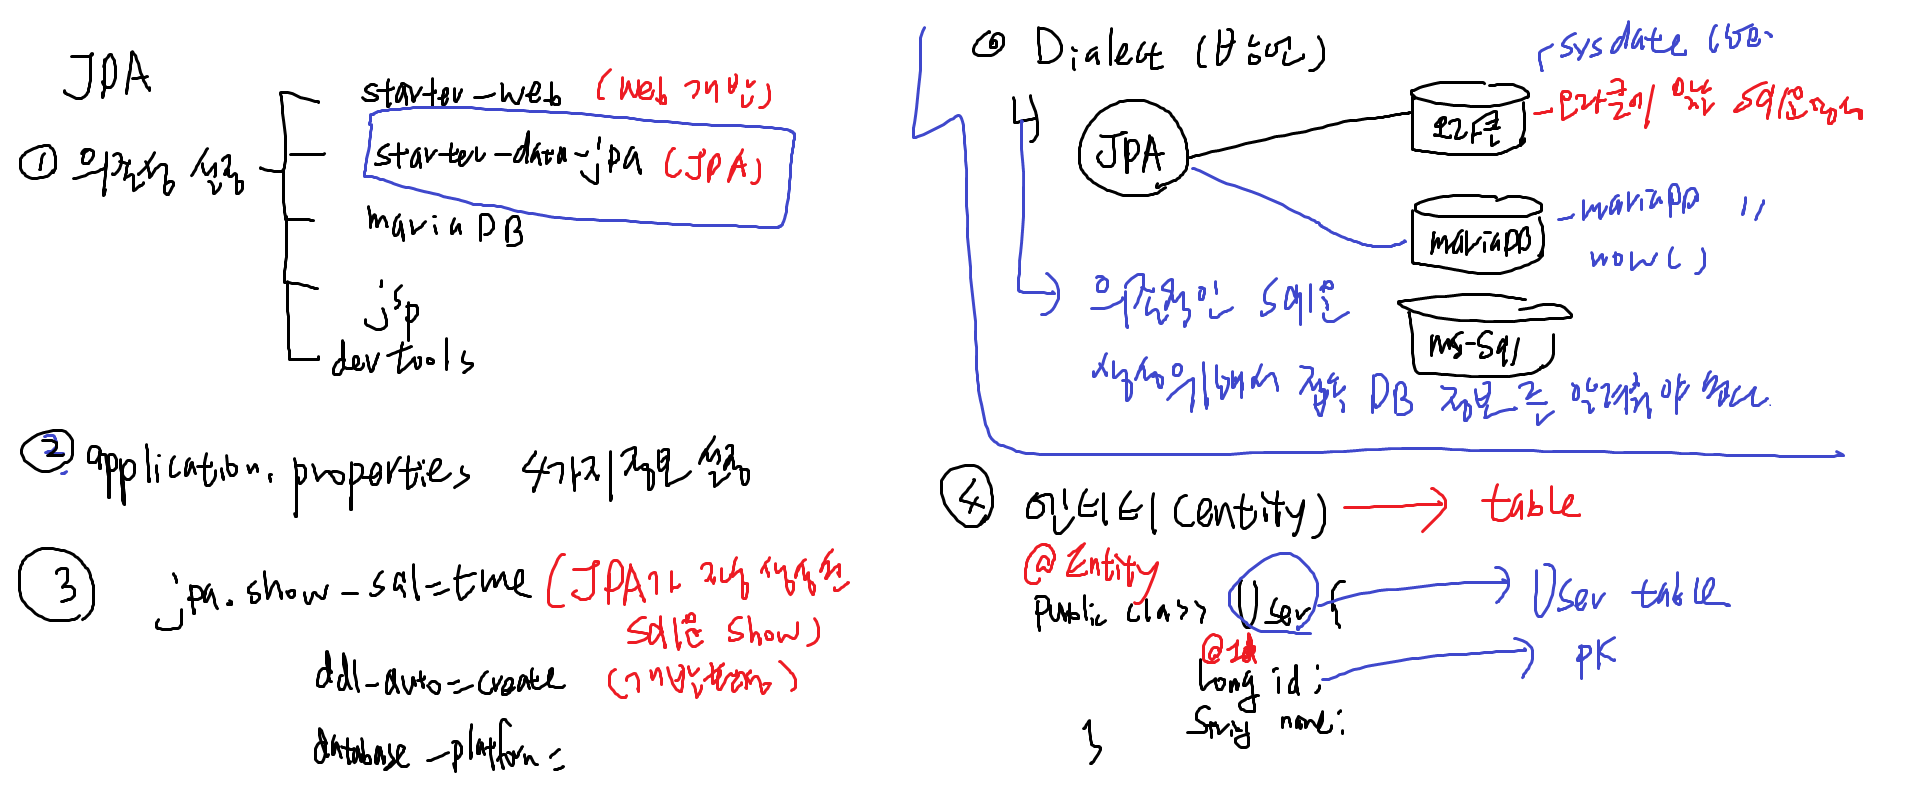 JPA
① 의존성 설정
starter-web (web 개발)
starter-data-jpa (JPA)
mariaDB
jsp
devtools
② application.properties 4가지 정보 설정
③ jpa.show-sql=true (JPA가 자동 생성한
SQL문 show)
ddl-auto=create (개발환경)
database-platform=
⑥ Dialect (방언)
sysdate
JPA
오라클
-오라클에 맞는 SQL문장생성
mariaDB
-mariaDB 〃
now()
ms-sql
의존적인 SQL문
생성위해서 접속 DB 정보를 알려줘야 한다.
④ 엔티티(entity) → table
@Entity
public class User { → User table
@Id
Long id; → PK
String name;
}